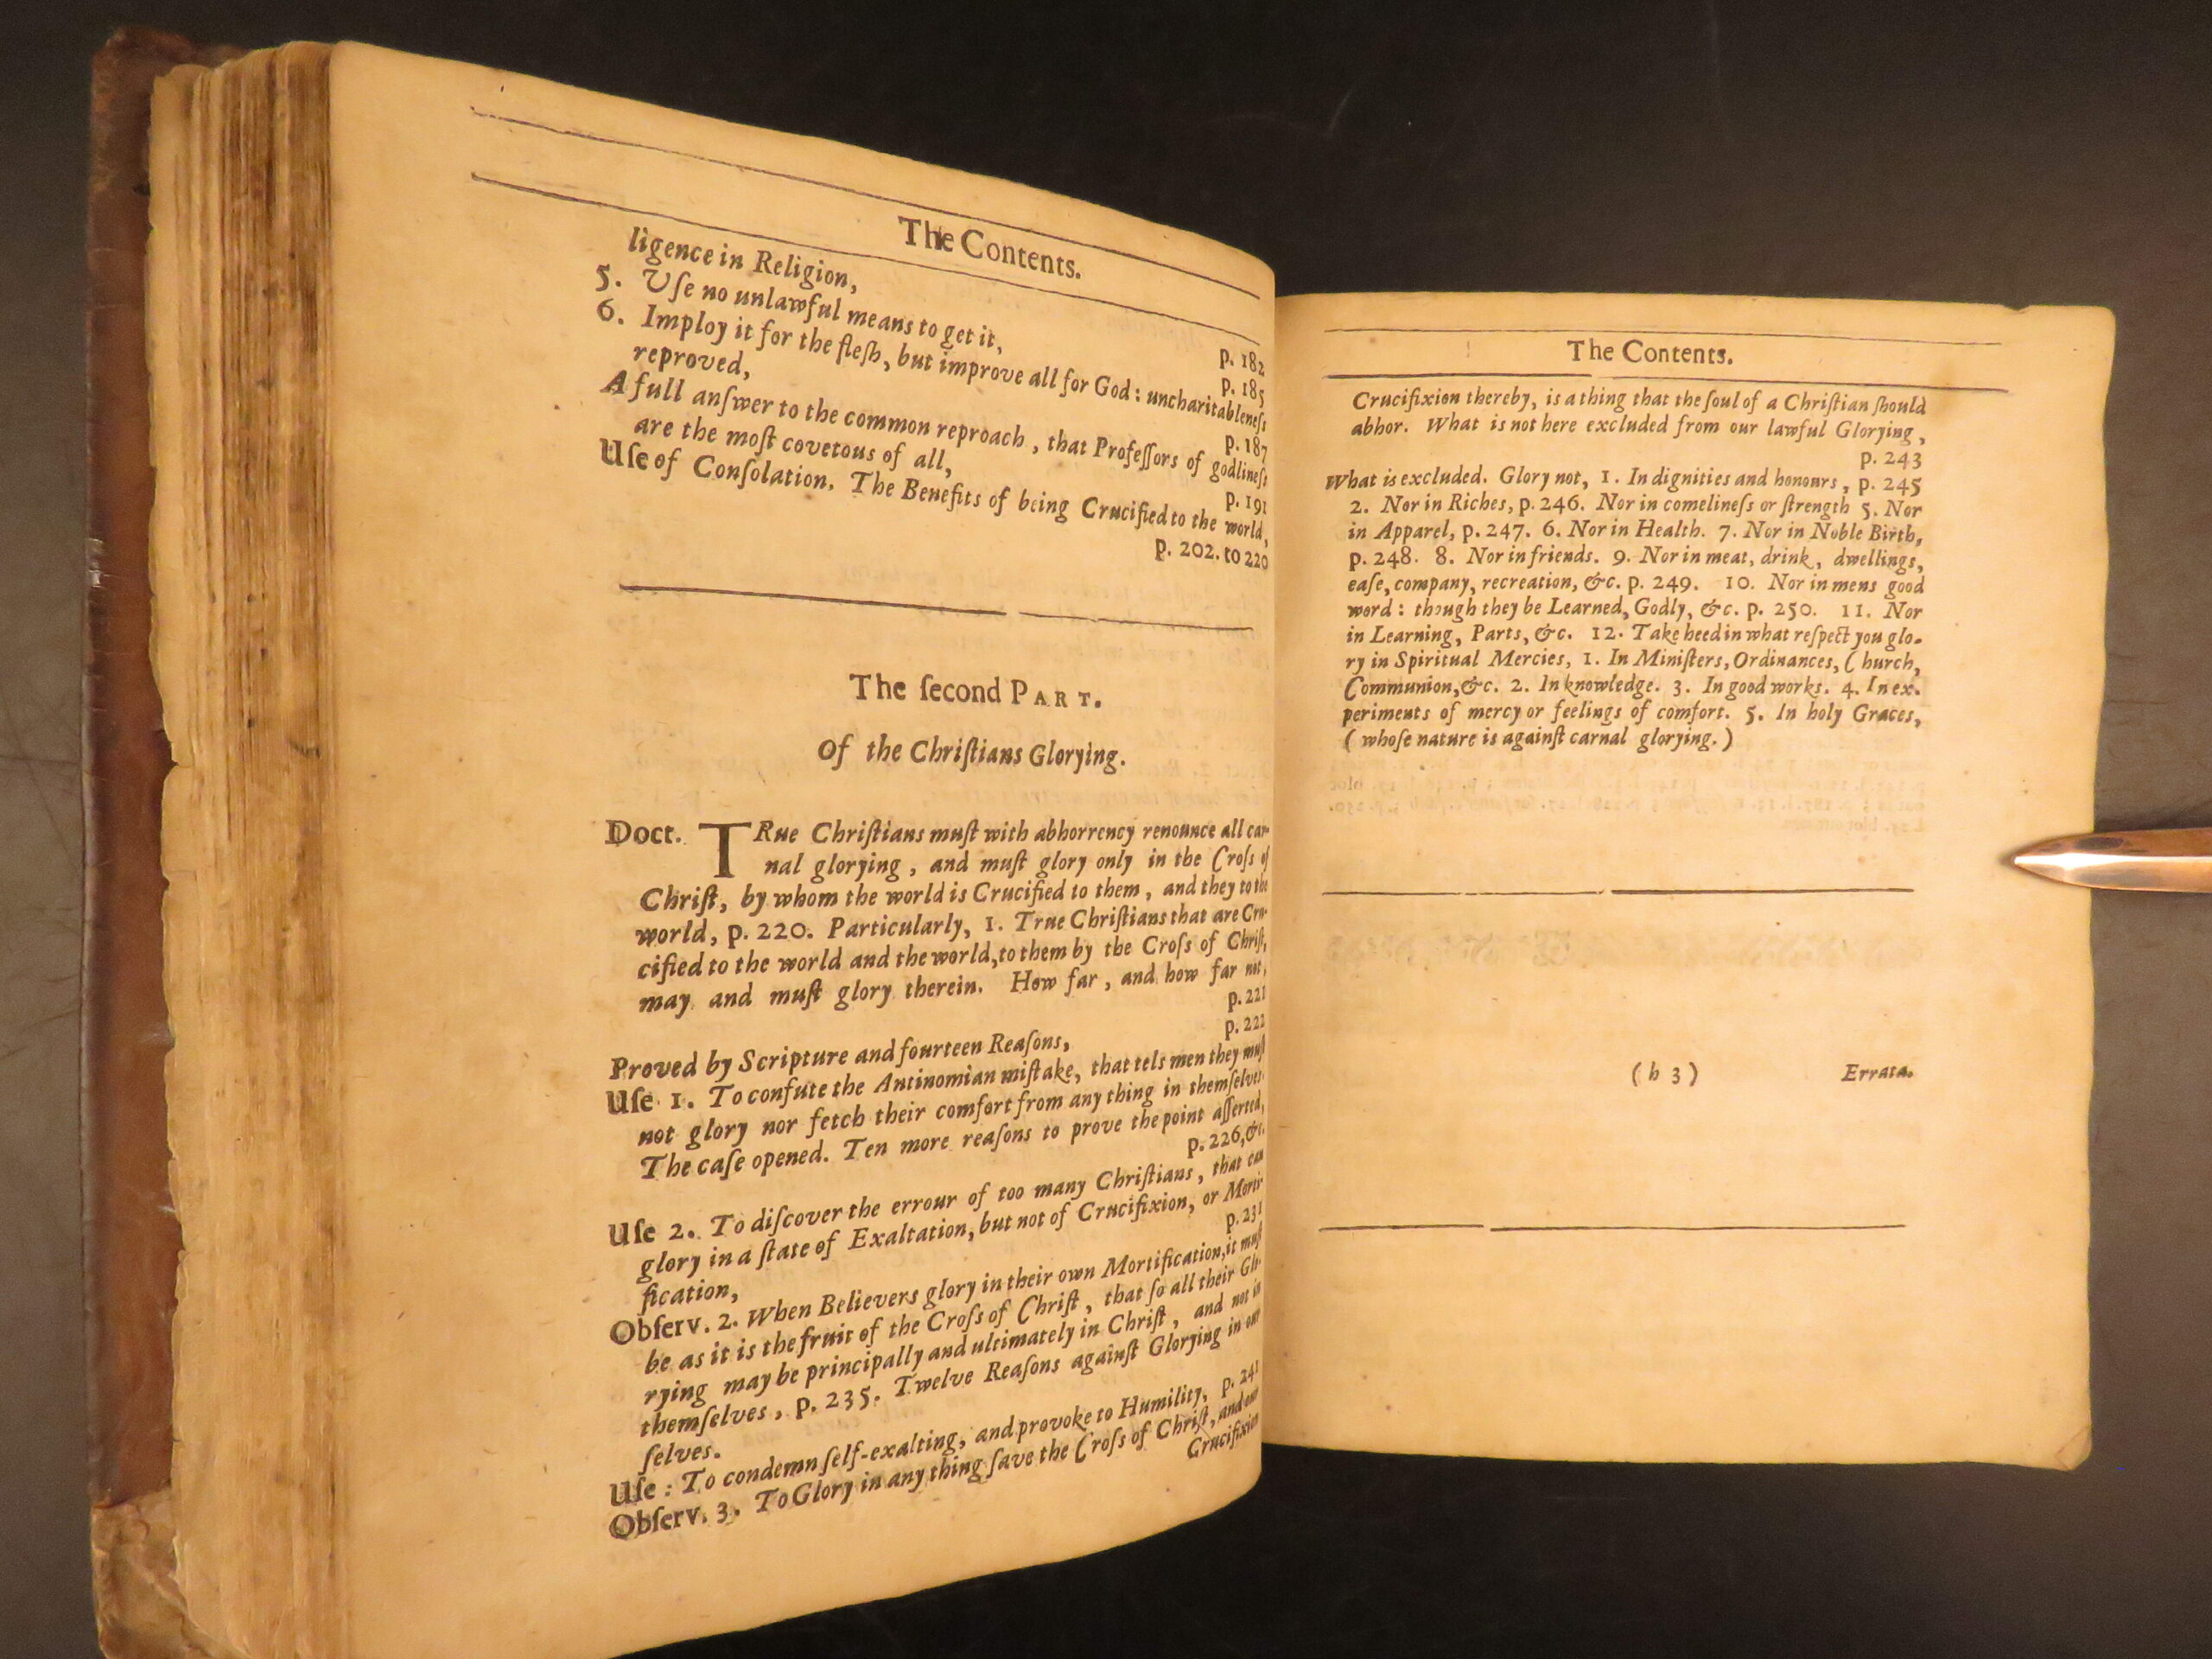 The Contents.
ligence in Religion,
p. 182
5. Uſe no unlawful means to get it,
p. 185
6. Imploy it for the fleſh, but improve all for God: uncharitableneſs
reproved,
p. 187
A full anſwer to the common reproach, that Profeſſors of godlineſs
are the moſt covetous of all,
p. 191
Uſe of Conſolation. The Benefits of being Crucified to the world,
p. 202. to 220
The ſecond PART.
Of the Chriſtians Glorying.
Doct. TRue Chriſtians muſt with abhorrency renounce all car-
nal glorying, and muſt glory only in the Croſs of
Chriſt, by whom the world is Crucified to them, and they to the
world, p. 220. Particularly, 1. True Chriſtians that are Cru-
cified to the world and the world, to them by the Croſs of Chriſt,
may and muſt glory therein. How far, and how far not,
p. 221
Proved by Scripture and fourteen Reaſons,
p. 222
Uſe 1. To confute the Antinomian miſtake, that tels men they muſt
not glory nor fetch their comfort from any thing in themſelves.
The caſe opened. Ten more reaſons to prove the point aſſerted,
p. 226, &c.
Uſe 2. To diſcover the errour of too many Chriſtians, that can
glory in a ſtate of Exaltation, but not of Crucifixion, or Morti-
fication,
p. 231
Obſerv. 2. When Believers glory in their own Mortification, it muſt
be as it is the fruit of the Croſs of Chriſt, that ſo all their Glo-
rying may be principally and ultimately in Chriſt, and not in
themſelves, p. 235. Twelve Reaſons against Glorying in our
ſelves.
Uſe: To condemn ſelf-exalting, and provoke to Humility, p. 241
Obſerv. 3. To Glory in any thing ſave the Croſs of Chriſt, and our
Crucifixion
The Contents.
Crucifixion thereby, is a thing that the ſoul of a Chriſtian ſhould
abhor. What is not here excluded from our lawful Glorying,
p. 243
What is excluded. Glory not, 1. In dignities and honours, p. 245
2. Nor in Riches, p. 246. Nor in comelineſs or ſtrength 5. Nor
in Apparel, p. 247. 6. Nor in Health. 7. Nor in Noble Birth,
p. 248. 8. Nor in friends. 9. Nor in meat, drink, dwellings,
eaſe, company, recreation, &c. p. 249. 10. Nor in mens good
word: though they be Learned, Godly, &c. p. 250. 11. Nor
in Learning, Parts, &c. 12. Take heed in what reſpect you glo-
ry in Spiritual Mercies, 1. In Miniſters, Ordinances, Church,
Communion, &c. 2. In knowledge. 3. In good works. 4. In ex-
periments of mercy or feelings of comfort. 5. In holy Graces,
(whoſe nature is againſt carnal glorying.)
(h 3) Errata.